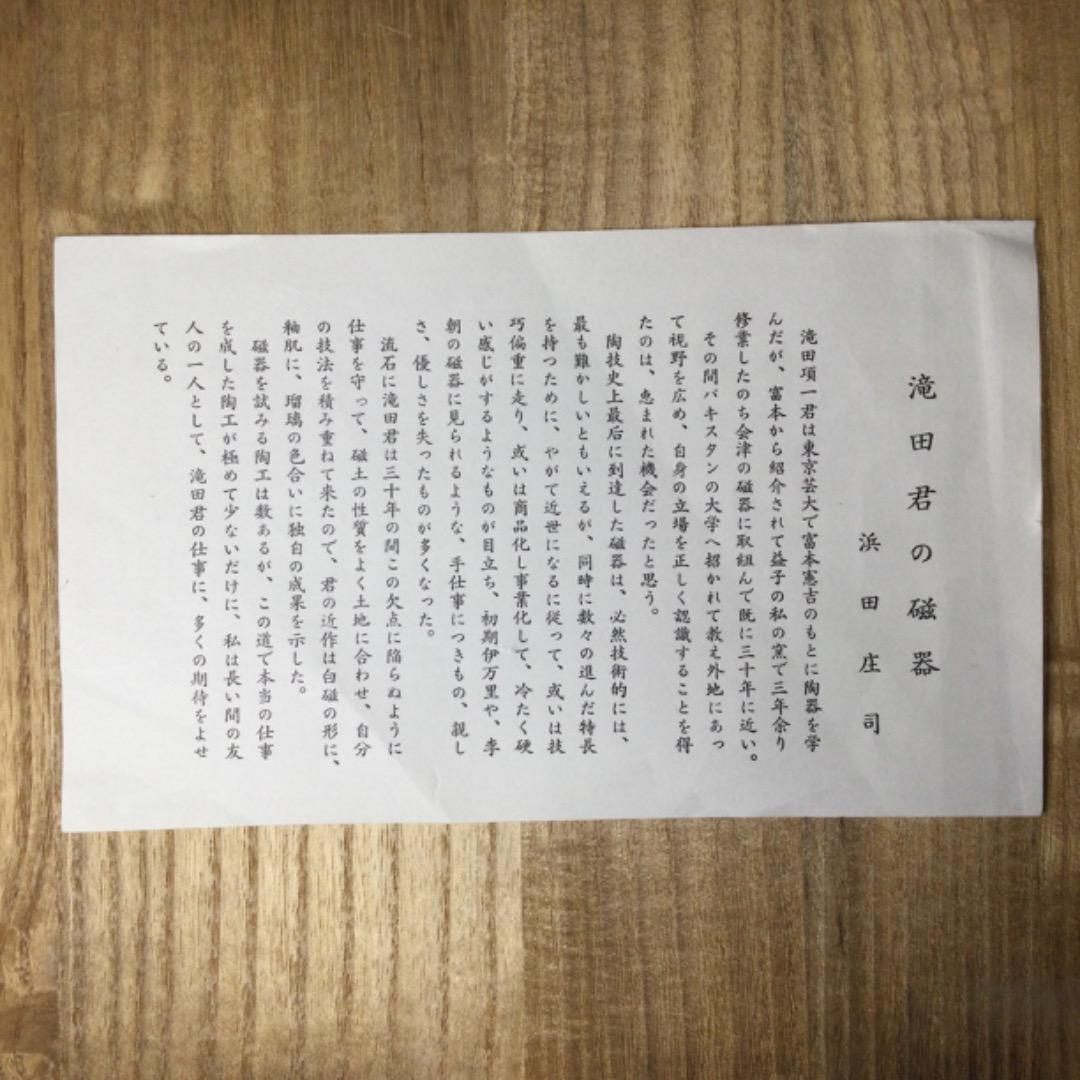 滝田君の磁器
浜田庄司
滝田項一君は東京芸大で富本憲吉のもとに陶器を学
んだが、富本から紹介されて益子の私の窯で三年余り
修業したのち会津の磁器に取組んで既に三十年に近い。
その間パキスタンの大学へ招かれて教え外地にあっ
て視野を広め、自身の立場を正しく認識することを得
たのは、恵まれた機会だったと思う。
陶技史上最后に到達した磁器は、必然技術的には、
最も難かしいともいえるが、同時に数々の進んだ特長
を持つために、やがて近世になるに従って、或いは技
巧偏重に走り、或いは商品化し事業化して、冷たく硬
い感じがするようなものが目立ち、初期伊万里や、李
朝の磁器に見られるような、手仕事につきもの、親し
さ、優しさを失ったものが多くなった。
流石に滝田君は三十年の間この欠点に陥らぬように
仕事を守って、磁土の性質をよく土地に合わせ、自分
の技法を積み重ねて来たので、君の近作は白磁の形に、
釉肌に、瑠璃の色合いに独自の成果を示した。
磁器を試みる陶工は数あるが、この道で本当の仕事
を成した陶工が極めて少ないだけに、私は長い間の友
人の一人として、滝田君の仕事に、多くの期待をよせ
ている。